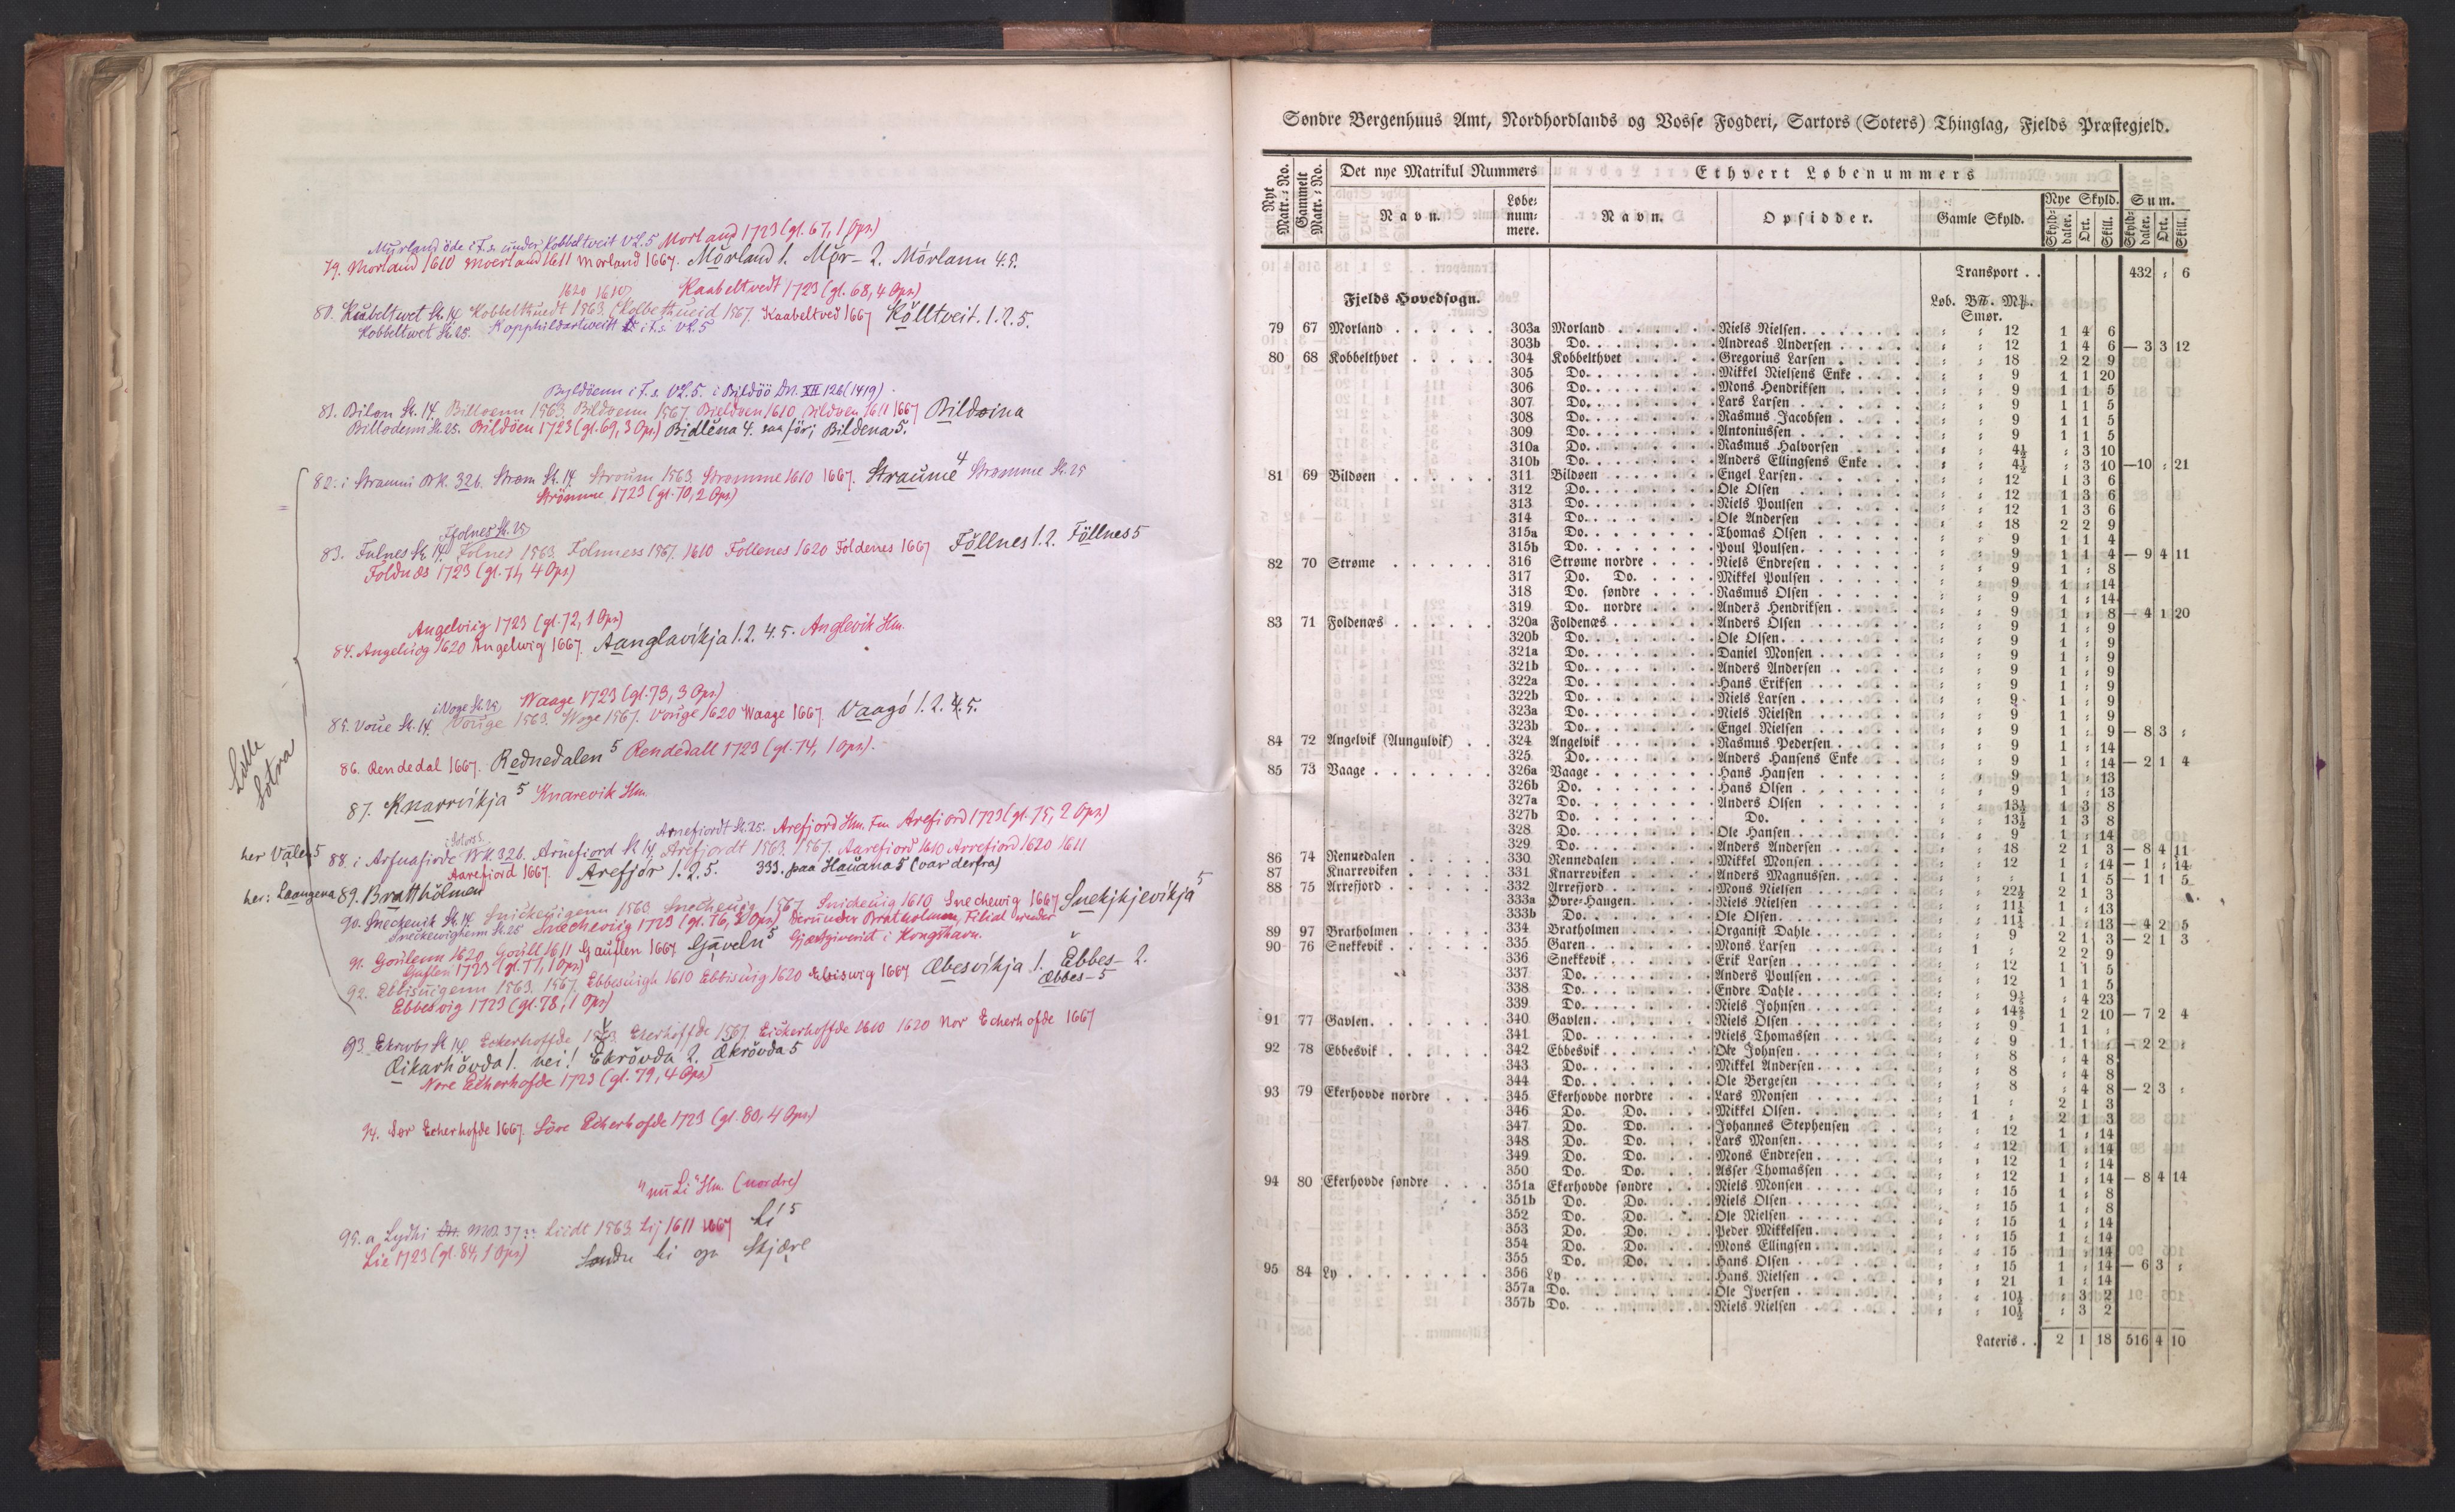 Myrland öde i F.s. under Kobbeltveit VL.5 Morland 1723 (gl. 67, 1 Ops.)
79. Morland 1610 Moerland 1611 Morland 1667. Mörland 1. Mör- 2. Mórlann 4.5.
1620 1610 Kaabeltvedt 1723 (gl. 68, 4 Ops.)
80. Kabeltwet St. 14. Kobbelthuedt 1563. Kolbethueid 1567. Kaabeltved 1667 Költveit. 1.2.5.
Kobbeltwet St. 25. Kopphildartweitt i F.s. VL.5
Byldöenn i F.s. VL.5. i Bildöö DN. XII 126 (1419)
81. Bilon St. 14. Billoenn 1563. Bildoenn 1567. Bieldoen 1610, Bildoen 1611 1667 Bildoina
Billodenn St. 25. Bildöen 1723 (gl. 69, 3 Ops.) Bidlena 4. saa för; Bildena 5.
82. i Straumi BK. 32b. Strøm St. 14. Stroum 1563. Strømme 1610 1667. Straume 4 Strømme St. 25
Strömme 1723 (gl. 70, 2 Ops)
Ffolnes St. 25
83. Fulnes St. 14. Folnes 1563. Folnness 1567. 1610 Follenes 1620 Foldenes 1667 Föllnes 1.2. Föllnes 5
Foldnæs 1723 (gl. 71, 4 Ops)
Angelviig 1723 (gl. 72, 1 Ops)
84. Angeluog 1620 Angelwig 1667. Aanglavikja 1.2.4.5. Anglevik Hm.
i Voge St. 25 Waage 1723 (gl. 73, 3 Ops)
85. Voue St. 14. Vouge 1563. Woge 1567. Vouge 1620 Waage 1667. Vaagó 1.2.4.5.
Lille Sotra
86. Rendedal 1667. Rednedalen 5 Rendedall 1723 (gl. 74, 1 Ops).
87. Knarrvikja 5 Knarevik Hm.
Arnefiordt St. 25. Arefjord Hm. Arefiord 1723 (gl. 75, 2 Ops)
her Valen 5 88. i Arfnafirde BK. 32b. Arnefiord St. 14, Arefjordt 1563. 1567. Aarefiord 1610 Arrefiord 1620 1611
Aarefiord 1667. Arefjor 1.2.5. 333. paa Hauana 5 (var derfra)
her: Laangena 89. Brattholmen
90. Sneckenik St. 14. Snickeuigenn 1563 Snecheuig 1567. Snicheuig 1610 Snechewig 1667 Snekjkjevikja 5
Sneckewighenn St. 25 Snecheviig 1723 (gl. 76, 2 Ops) derunder Bratholmen, Filial under
Gjæstgiveriet i Kongshavn.
91. Goulenn 1620 Goull 1611 Gauflen 1667. Gjáveln 5
Gaflen 1723 (gl. 77, 1 Ops)
92. Ebbisuigenn 1563. 1567. Ebbesuigh 1610 Ebbisuig 1620 Ebbiswig 1667. Æbesvikja 1. Ebbes- 2.
Æbbes- 5
Ebbesvig 1723 (gl. 78, 1 Ops)
93. St. 14. Eckerhoffde 1563. Ekerhoffde 1567. Eickerhoffde 1610 1620 Nor Echerhofde 1667
Æikarhövda 1. nei! Ekrövda 2. Ækrövda 5
Nore Echerhofde 1723 (gl. 79, 4 Ops)
94. Sør Echerhofde 1667. Söre Echerhofde 1723 (gl. 80, 4 Ops)
"nu Li" Hm. (nordre)
95. a Lydhi MB. 37. Liidt 1563. Lij 1611 1667 Li 5
Lie 1723 (gl. 84, 1 Ops) Söndre Li og Skjære
Søndre Bergenhuus Amt, Nordhordlands og Vosse Fogderi, Sartors (Soters) Thinglag, Fjelds Præstegjeld.
Nyt Matr.-No. Gammelt Matr.-No. Det nye Matrikul Nummers Ethvert Løbenummers
Navn. Løbenummere. Navn. Opsidder. Gamle Skyld. Nye Skyld. Sum.
Skylddaler. Ort. Skill. Skylddaler. Ort. Skill.
Transport . . 432 : 6
Fjelds Hovedsogn. Løb. B℔. M℔.
Smør.
79 67 Morland 303a Morland Niels Nielsen : : 12 1 4 6
303b Do. Andreas Andersen : : 12 1 4 6 — 3 3 12
80 68 Kobbelthvet 304 Kobbelthvet Gregorius Larsen : : 18 2 2 9
305 Do. Mikkel Nielsens Enke : : 9 1 1 20
306 Do. Mons Hendriksen : : 9 1 1 5
307 Do. Lars Larsen : : 9 1 1 5
308 Do. Rasmus Jacobsen : : 9 1 1 5
309 Do. Antoniussen : : 9 1 1 5
310a Do. Rasmus Halvorsen : : 4½ : 3 10
310b Do. Anders Ellingsens Enke : : 4½ : 3 10 — 10 : 21
81 69 Bildøen 311 Bildøen Engel Larsen : : 12 1 3 6
312 Do. Ole Olsen : : 12 1 3 6
313 Do. Niels Poulsen : : 12 1 3 6
314 Do. Ole Andersen : : 18 2 2 9
315a Do. Thomas Olsen : : 9 1 1 4
315b Do. Poul Poulsen : : 9 1 1 4 — 9 4 11
82 70 Strøme 316 Strøme nordre Niels Endresen : : 9 1 : 8
317 Do. Do. Mikkel Poulsen : : 9 1 : 14
318 Do. søndre Rasmus Olsen : : 9 1 : 14
319 Do. nordre Anders Hendriksen : : 9 1 : 8 — 4 1 20
83 71 Foldenæs 320a Foldenæs Anders Olsen : : 9 1 : 9
320b Do. Ole Olsen : : 9 1 : 9
321a Do. Daniel Monsen : : 9 1 : 9
321b Do. Anders Andersen : : 9 1 : 9
322a Do. Hans Eriksen : : 9 1 : 9
322b Do. Niels Larsen : : 9 1 : 9
323a Do. Niels Nielsen : : 9 1 : 9
323b Do. Engel Nielsen : : 9 1 : 9 — 8 3 :
84 72 Angelvik (Aungulvik) 324 Angelvik Rasmus Pedersen : : 9 1 : 14
325 Do. Anders Hansens Enke : : 9 1 : 14 — 2 1 4
85 73 Vaage 326a Vaage Hans Hansen : : 9 1 : 13
326b Do. Hans Olsen : : 9 1 : 13
327a Do. Anders Olsen : : 13½ 1 3 8
327b Do. Do. : : 13½ 1 3 8
328 Do. Ole Hansen : : 9 1 : 14
329 Do. Anders Andersen : : 18 2 1 3 — 8 4 11
86 74 Rennedalen 330 Rennedalen Mikkel Monsen : : 12 1 : 14 — 1 : 14
87 Knarreviken 331 Knarreviken Anders Magnussen : : : 1 1 5 — 1 1 5
88 75 Arrefjord 332 Arrefjord Mons Nielsen : : 22½ 2 1 3
333a Øvre-Haugen Niels Nielsen : : 11¼ 1 : 13
333b Do. Ole Olsen : : 11¼ 1 : 13 — 4 2 5
89 97 Bratholmen 334 Bratholmen Organist Dahle : : 9 2 1 3 — 2 1 3
90 76 Snekkevik 335 Garen Mons Larsen : 1 : 2 2 9
336 Snekkevik Erik Larsen : : 12 1 1 5
337 Do. Anders Poulsen : : 12 1 1 5
338 Do. Endre Dahle : : 9⅗ : 4 23
339 Do. Niels Johnsen : : 14⅖ 1 2 10 — 7 2 4
91 77 Gavlen 340 Gavlen Niels Olsen : : 9 1 1 :
341 Do. Niels Thomassen : : 9 1 1 : — 2 2 :
92 78 Ebbesvik 342 Ebbesvik Ole Johnsen : : 8 : 4 8
343 Do. Mikkel Andersen : : 8 : 4 8
344 Do. Ole Bergesen : : 8 : 4 8 — 2 3 :
93 79 Ekerhovde nordre 345 Ekerhovde nordre Lars Monsen : 1 : 2 1 3
346 Do. Do. Mikkel Olsen : 1 : 2 1 3
347 Do. Do. Johannes Stephensen : : 12 1 : 14
348 Do. Do. Lars Monsen : : 12 1 : 14
349 Do. Do. Mons Endresen : : 12 1 : 14
350 Do. Do. Asser Thomassen : : 12 1 : 14 — 8 4 14
94 80 Ekerhovde søndre 351a Ekerhovde søndre Niels Monsen : : 15 1 : 8
351b Do. Do. Niels Olsen : : 15 1 : 8
352 Do. Do. Ole Nielsen : : 15 1 : 14
353 Do. Do. Peder Mikkelsen : : 15 1 : 14
354 Do. Do. Mons Ellingsen : : 15 1 : 14
355 Do. Do. Hans Olsen : : 15 1 : 14 — 6 3 :
95 84 Ly 356 Ly Hans Nielsen : : 21 1 : 14
357a Do. Ole Iversen : : 10½ : 3 2
357b Do. Niels Nielsen : : 10½ : 3 2
Lateris . . 2 1 18 516 4 10